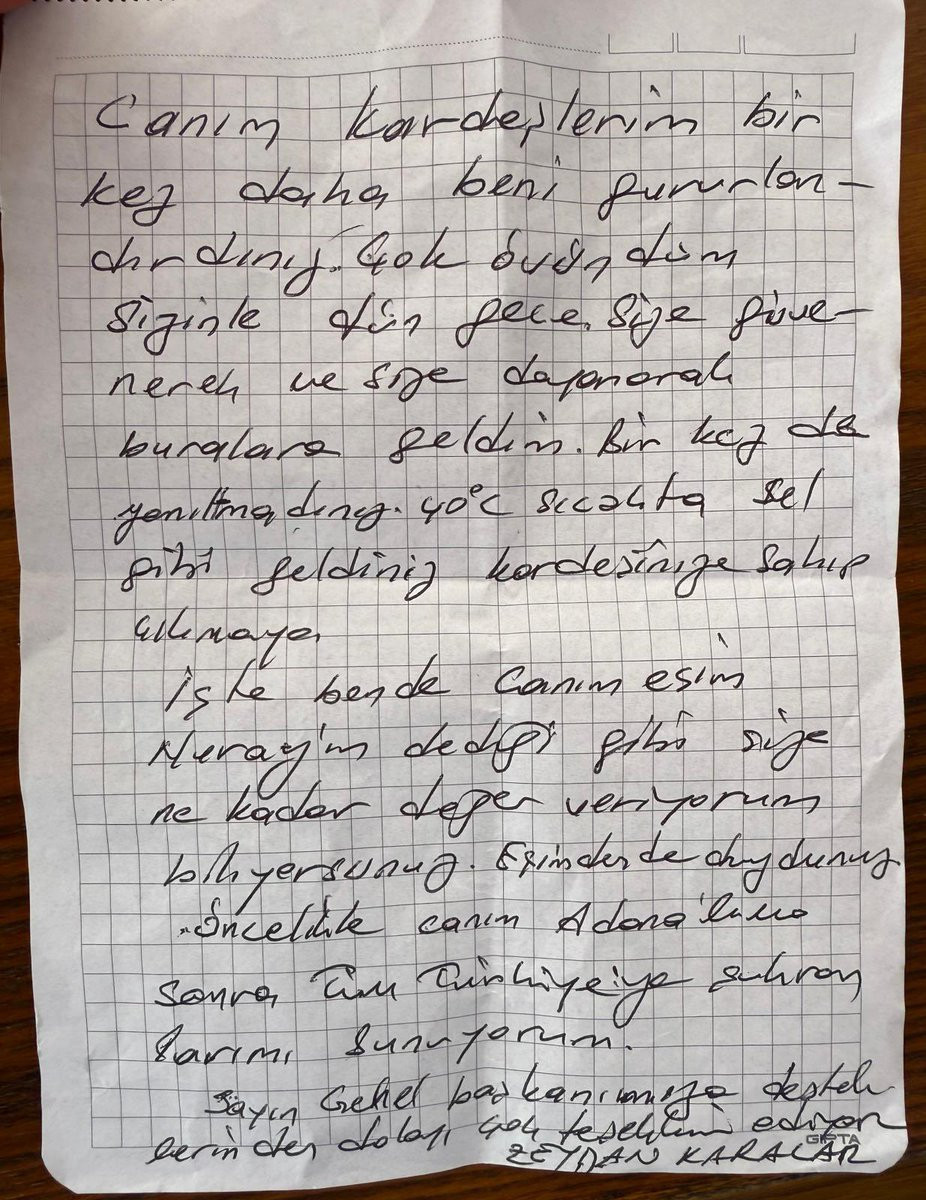 Canım kardeşlerim bir
kez daha beni gururlan-
dırdınız. Çok övündüm
Sizinle dün gece. Size güve-
nerek ve size dayanarak
buralara geldim. Bir kez de
yanıltmadınız. 40°C sıcakta sel
gibi geldiniz kardeşinize sahip
çıkmaya.
İşte bende canım eşim
Nuray'ın dediği gibi size
ne kadar değer veriyorum
biliyorsunuz. Eşimden de duydunuz
Öncelikle canım Adana'lıma
sonra tüm Türkiye'ye şükran
larımı sunuyorum.
Sayın Genel başkanımıza destek
lerinden dolayı çok teşekkür ediyor
ZEYDAN KARALAR
GIPTA